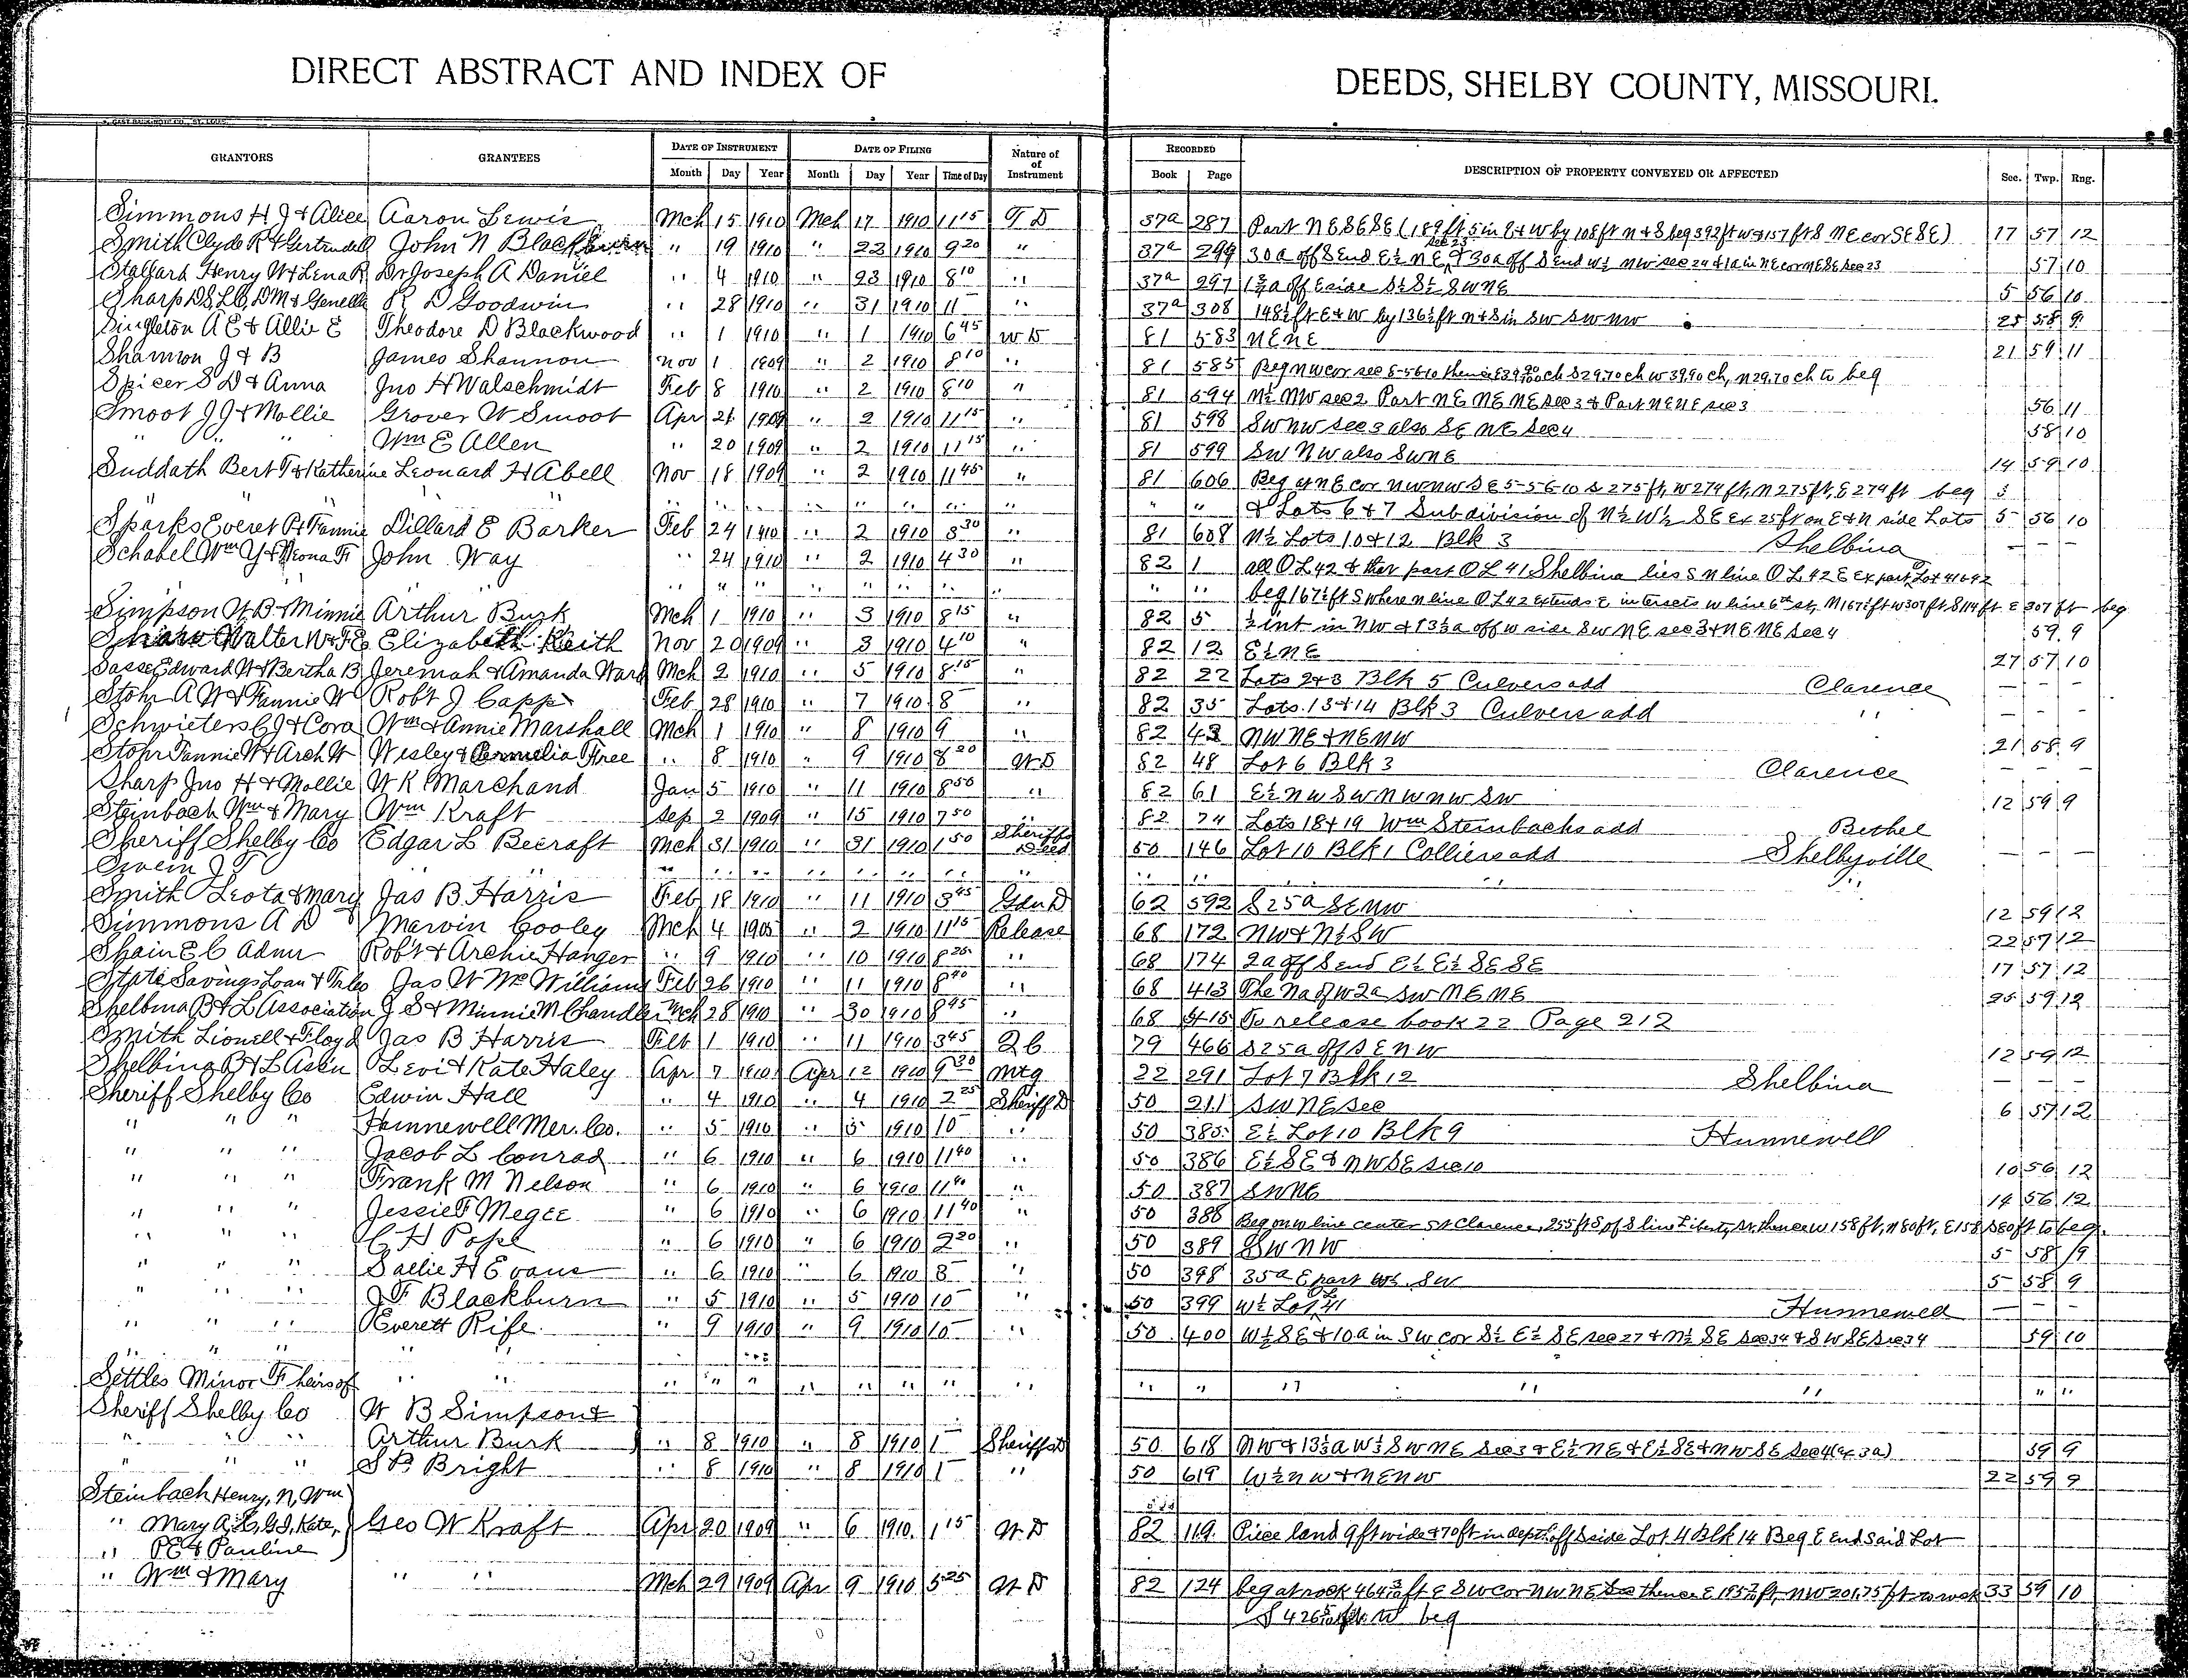 DIRECT ABSTRACT AND INDEX OF DEEDS, SHELBY COUNTY, MISSOURI.
GRANTORS GRANTEES DATE OF INSTRUMENT DATE OF FILING Nature of of Instrument RECORDED DESCRIPTION OF PROPERTY CONVEYED OR AFFECTED Sec. Twp. Rng.
Month Day Year Month Day Year Time of Day Book Page
Simmons H J & Alice Aaron Lewis Mch 15 1910 Mch 17 1910 11 15 T D 37a 287 Part NE SE SE (189 ft 5 in E & W by 108 ft N & S beg 392 ft W & 157 ft S NE cor SE SE) 17 57 12
Smith Clyde R & Gertrudell John N Blackburn " 19 1910 " 22 1910 9 20 " 37a 299 30a off S end E½ NE sec 23 & 30a off S end W½ NW sec 24 & 1a in NE cor NE SE sec 23 57 10
Stallard Henry W & Lena R Dr Joseph A Daniel " 4 1910 " 23 1910 8 10 " 37a 297 off E side S½ S½ SW NE 5 56 10
Sharp D S L C, D M & Genelle R D Goodwin " 28 1910 " 31 1910 11 " 37a 308 148½ ft E & W by 136½ ft N & S in SW SW NW 25 58 9
Singleton A E & Allie E Theodore D Blackwood " 1 1910 " 1 1910 6 45 W D 81 583 NE NE 21 59 11
Shannon J & B James Shannon Nov 1 1909 " 2 1910 8 10 " 81 585 Beg NW cor sec 5-56-10 thence E 39.90 ch S 29.70 ch W 39.90 ch, N 29.70 ch to beg
Spicer S D & Anna Jno H Walschmidt Feb 8 1910 " 2 1910 8 10 " 81 594 N½ NW sec 2 Part NE NE NE sec 3 & Part NE NE sec 3 56 11
Smoot J J & Mollie Grover W Smoot Apr 21 1909 " 2 1910 11 15 " 81 598 SW NW sec 3 also SE NE sec 4 58 10
" " " Wm E Allen " 20 1909 " 2 1910 11 15 " 81 599 SW NW also SW NE 14 59 10
Suddath Bert T & Katherine Leonard H Abell Nov 18 1909 " 2 1910 11 45 " 81 606 Beg at NE cor NW NW SE 5-56-10 S 275 ft, W 274 ft, N 275 ft, E 274 ft beg 5
" " " " " " " " " " " " " " & Lots 6 & 7 Subdivision of N½ W½ SE Ex 25 ft on E & N side Lots 5 56 10
Sparks Everet P & Fannie Dillard E Barker Feb 24 1910 " 2 1910 8 30 " 81 608 N½ Lots 10 & 12 Blk 3 Shelbina — —
Schabel Wm Y & Leona F John Way " 24 1910 " 2 1910 4 30 " 82 1 all O L 42 & that part O L 41 Shelbina lies S N line O L 42 E Ex part Lot 41 & 42
" " " " " " " " " beg 167½ ft S where N line O L 42 extends E intersects W line 6th st, N 167½ ft W 307 ft S 114 ft E 307 ft beg
Simpson W B & Minnie Arthur Burk Mch 1 1910 " 3 1910 8 15 " 82 5 ½ int in NW & 13⅓a off W side SW NE sec 3 & NE NE sec 4 59 9
Share Walter W & F E Elizabeth Keith Nov 20 1909 " 3 1910 4 10 " 82 12 E½ NE 27 57 10
Sasse Edward W & Bertha B Jeremah & Amanda Ward Mch 2 1910 " 5 1910 8 15 " 82 22 Lots 2 & 3 Blk 5 Culvers add Clarence — — —
Stohr A W & Fannie W Robt J Capp Feb 28 1910 " 7 1910 8 " 82 35 Lots 13 & 14 Blk 3 Culvers add " — — —
Schwieters C J & Cora Wm & Annie Marshall Mch 1 1910 " 8 1910 9 " 82 43 NW NE & NE NW 21 58 9
Stohr Fannie W & Arch W Wesley & Permelia Free " 8 1910 " 9 1910 8 20 W D 82 48 Lot 6 Blk 3 Clarence — — —
Sharp Jno H & Mollie W K Marchand Jan 5 1910 " 11 1910 8 50 " 82 61 E½ NW SW NW NW SW 12 59 9
Steinbach Wm & Mary Wm Kraft Sep 2 1909 " 15 1910 7 50 " 82 74 Lots 18 & 19 Wm Steinbachs add Bethel
Sheriff Shelby Co Edgar L Becraft Mch 31 1910 " 31 1910 1 50 Sheriffs Deed 50 146 Lot 10 Blk 1 Colliers add Shelbyville — — —
Owein J T " " " " " " " " " " " "
Smith Leota & Mary Jas B Harris Feb 18 1910 " 11 1910 3 45 Gdn D 62 592 S 25a SE NW 12 59 12
Simmons A D Marvin Cooley Mch 4 1905 " 2 1910 11 15 Release 68 172 NW & N½ SW 22 57 12
Shain E C Admr Robt & Archie Hanger " 9 1910 " 10 1910 8 25 " 68 174 2a off S end E½ E½ SE SE 17 57 12
State Savings Loan & Trles Jas W McWilliams Feb 26 1910 " 11 1910 8 40 " 68 413 The Na of W 2a SW NE NE 35 59 12
Shelbina B & L Association J S & Minnie M Chandler Mch 28 1910 " 30 1910 8 45 " 68 415 To release book 22 Page 212
Smith Lionell & Floyd Jas B Harris Feb 1 1910 " 11 1910 3 45 Q C 79 466 S 25a off SE NW 12 59 12
Shelbina B & L Assn Levi & Kate Haley Apr 7 1910 Apr 12 1910 9 30 Mtg 22 291 Lot 7 Blk 12 Shelbina — — —
Sheriff Shelby Co Edwin Hall " 4 1910 " 4 1910 2 25 Sheriff D 50 211 SW NE Sec 6 57 12
" " " Hunnewell Mer. Co. " 5 1910 " 5 1910 10 " 50 385 E½ Lot 10 Blk 9 Hunnewell
" " " Jacob L Conrad " 6 1910 " 6 1910 11 40 " 50 386 E½ SE & NW SE sec 10 10 56 12
" " " Frank M Nelson " 6 1910 " 6 1910 11 40 " 50 387 SW NE 14 56 12
" " " Jessie F Megee " 6 1910 " 6 1910 11 40 " 50 388 Beg on W line center St Clarence, 255 ft S of S line Liberty St, thence W 158 ft, N 80 ft, E 158 S 80 ft to beg.
" " " C H Pope " 6 1910 " 6 1910 2 20 " 50 389 SW NW 5 58 9
" " " Sallie H Evans " 6 1910 " 6 1910 3 " 50 398 35a E part W½ SW 5 58 9
" " " J F Blackburn " 5 1910 " 5 1910 10 " 50 399 W½ O L Lot 41 Hunnewell — — —
" " " Everett Rife " 9 1910 " 9 1910 10 " 50 400 W½ SE & 10a in SW cor S½ E½ SE sec 27 & N½ SE sec 34 & SW SE sec 34 59 10
" " " " " "
Settles Minor F heirs of " " " " " " " " " " " " " " " " "
Sheriff Shelby Co W B Simpson &
" " " Arthur Burk " 8 1910 " 8 1910 1 Sheriffs D 50 618 NW & 13⅓a W⅓ SW NE Sec 3 & E½ NE & E½ SE & NW SE Sec 4 (Ex 3a) 59 9
" " " S B Bright " 8 1910 " 8 1910 1 " 50 619 W½ NW & NE NW 22 59 9
Steinbach Henry, N, Wm
" Mary A, L, G J, Kate, Geo W Kraft Apr 20 1909 " 6 1910 1 15 W D 82 119 Piece land 9 ft wide & 70 ft in depth off S side Lot 4 Blk 14 Beg E end said Lot
" P E & Pauline
" Wm & Mary " " Mch 29 1909 Apr 9 1910 5 25 W D 82 124 beg at rock 464 ft E SW cor NW NE thence E 195 ft, NW 201.75 ft to rock 33 59 10
S 426 ft W beg